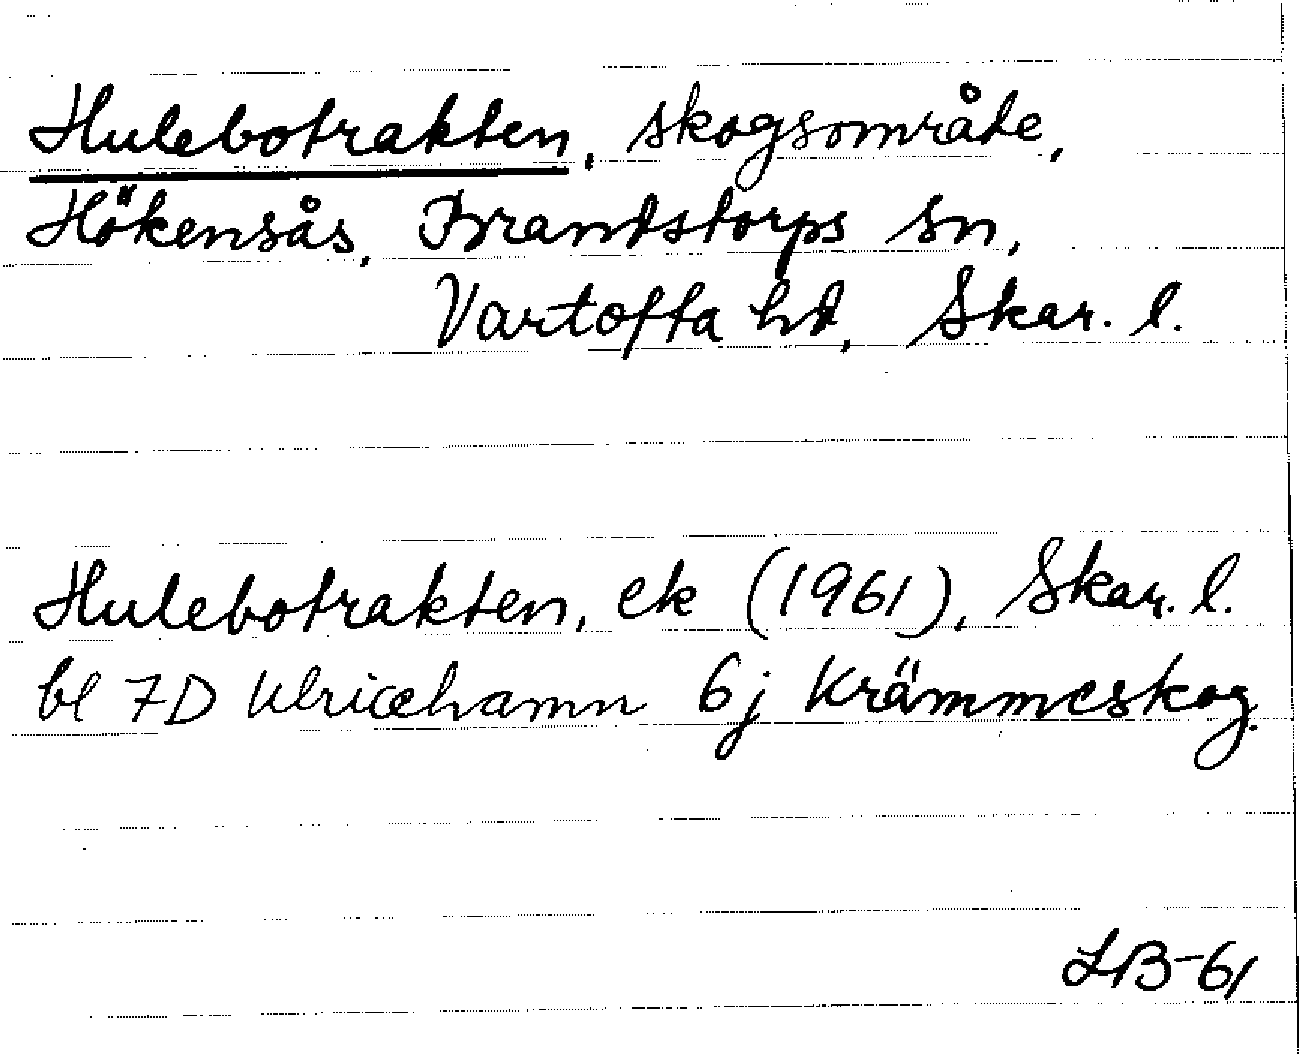 Hulebotrakten, skogsområde,
Hökensås, Brandstorps sn,
Vartofta hd, Skar. l.
Hulebotrakten, ek (1961), Skar. l.
bl 7D Ulricehamn 6j Krämmeskog.
LB-61